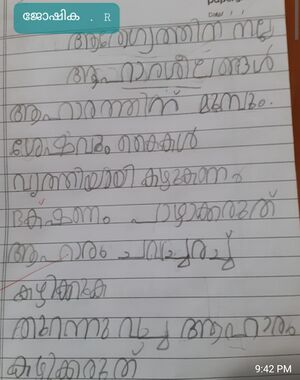 ജോഷിക . R
ആരോഗ്യത്തിന് നല്ല
ആഹാരശീലങ്ങൾ
ആഹാരത്തിന് മുമ്പും
ശേഷവും കൈകൾ
വൃത്തിയായി കഴുകണം
ഭക്ഷണം പാഴാക്കരുത്
ആഹാരം ചവച്ചരച്ച്
കഴിക്കുക
തുറന്നു വച്ച ആഹാരം
കഴിക്കരുത്
9:42 PM